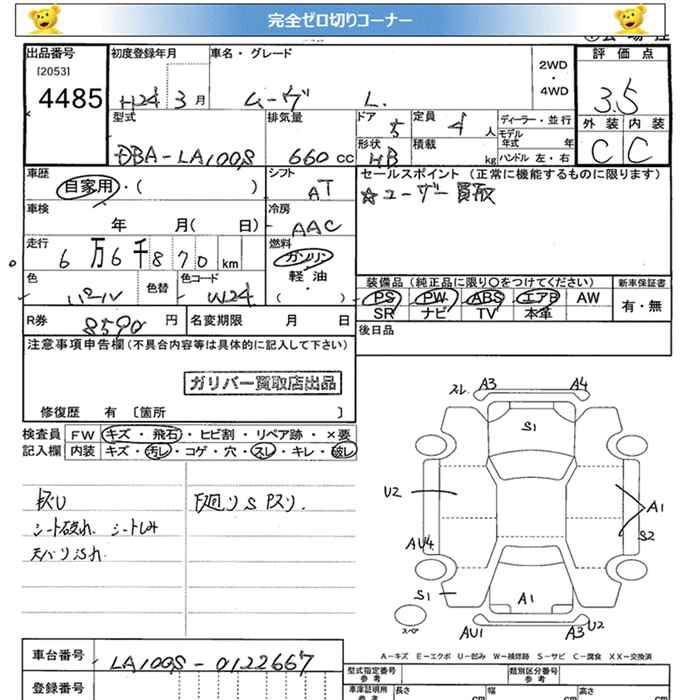 完全ゼロ切りコーナー
出品番号 [2053] 4485
初度登録年月 H24 3月
車名・グレード ムーヴ L.
2WD・4WD
評価点 3.5
外装 内装
C C
型式 DBA-LA100S
排気量 660cc
ドア 5
定員 4人
ディーラー・並行
モデル年式 年
形状 HB
積載 kg
ハンドル 左・右
車歴 自家用・( )
シフト AT
セールスポイント (正常に機能するものに限ります)
☆ユーザー買取
車検 年 月( 日)
冷房 AAC
走行 6万6千870km
燃料 ガソリン 軽油 ・ ( )
色 パール
色替
色コード W24
装備品 (純正品に限り〇をつけてください)
新車保証書
PS PW ABS エアB AW
有・無
SR ナビ TV 本革
R券 8590円
名変期限 月 日
後日品
注意事項申告欄(不具合内容等は具体的に記入して下さい)
ガリバー買取店出品
修復歴 有 〔箇所 〕
検査員 FW キズ・飛石・ヒビ割・リペア跡・×要
記入欄 内装 キズ・汚レ・コゲ・穴・スレ・キレ・破レ
シート破れ. シートしみ
スレ A3 A4
S1
U2
A1
S2
AU4
S1
A1
スペア
AU1 A3 U2
A-キズ E-エクボ U-凹み W-補修跡 S-サビ C-腐食 XX-交換済
車台番号 LA100S-0122667
型式指定番号 参考
類別区分番号 参考
登録番号
車庫証明用 参考
長さ cm
幅 cm
高さ cm